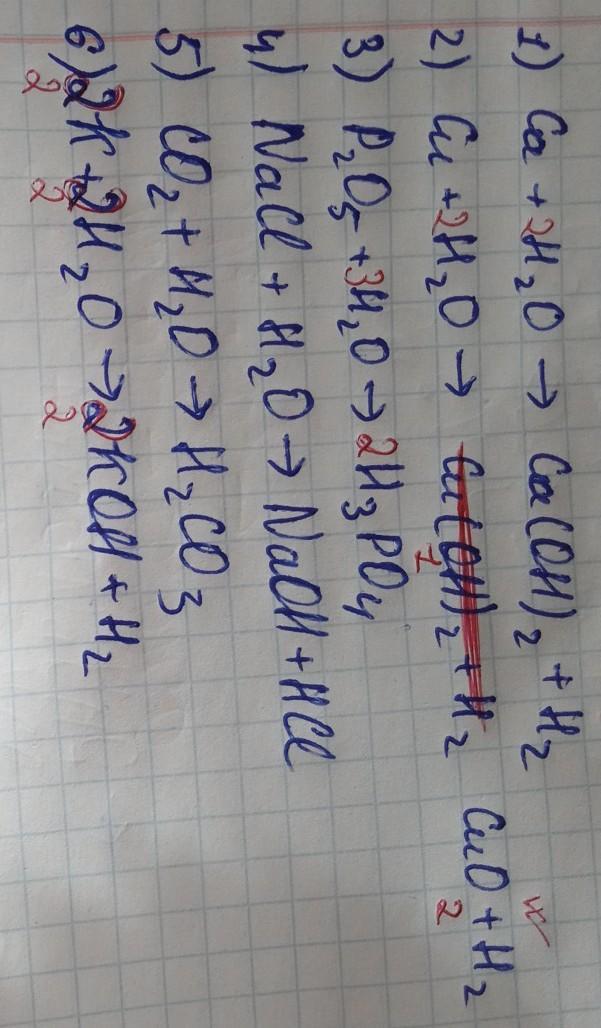 1) Ca + 2H₂O → Ca(OH)₂ + H₂
2) Cu + 2H₂O → Cu(OH)₂ + H₂ CuO + H₂
1 2
3) P₂O₅ + 3H₂O → 2H₃PO₄
4) NaCl + H₂O → NaOH + HCl
5) CO₂ + H₂O → H₂CO₃
6) 2K + 2H₂O → 2KOH + H₂
2 2 2